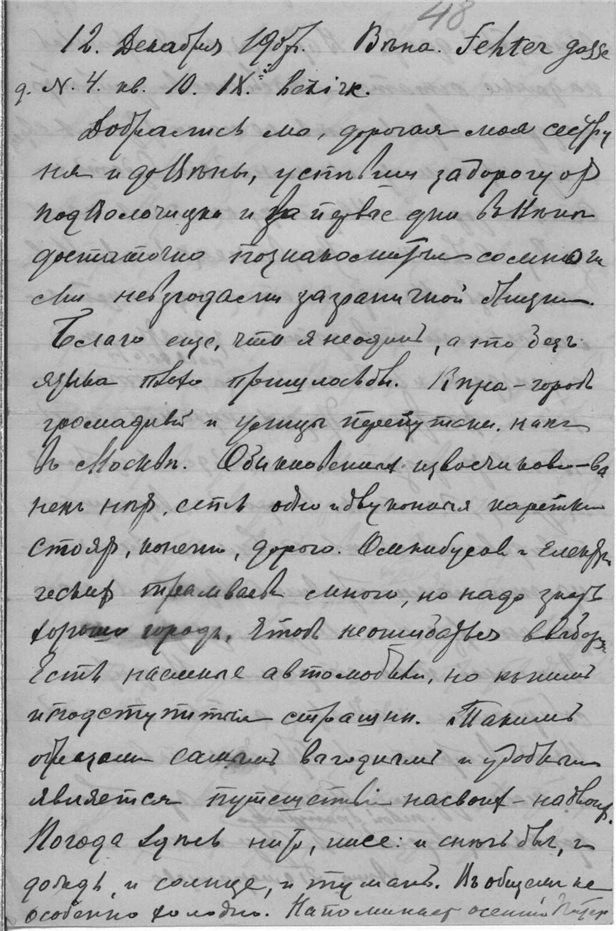 48
12. Декабря 190 г. Вѣна. Fehter gasse
д. N. 4. кв. 10. IX. bezirk.
Добрались мы, дорогая моя сестру
ня и до Вѣны, уставши за дорогу от
Подволочиска и за первые дни в Вѣнѣ
достаточно познакомившись со многи
ми невзгодами заграничной жизни.
Благо еще, что я не один, а то без
языка плохо пришлось бы. Вѣна – город
громадный и улицы перепутаны, как
в Москвѣ. Обыкновенных извозчиков – ва
нек нѣт, есть одно и двуконныя каретки
стоят, конечно, дорого. Омнибусов и електри
ческих трамваев много, но надо знать
хорошо город, чтоб не ошибаться в выборѣ.
Есть наемные автомобили, но к ним
и подступиться страшно. Таким
образом самым выгодным и удобным
является путешествие на своих – на двоих.
Погода здѣсь
и снѣг был, и
дождь, и солнце, и туман. В общем не
особенно холодно. Напоминает осенний Петер